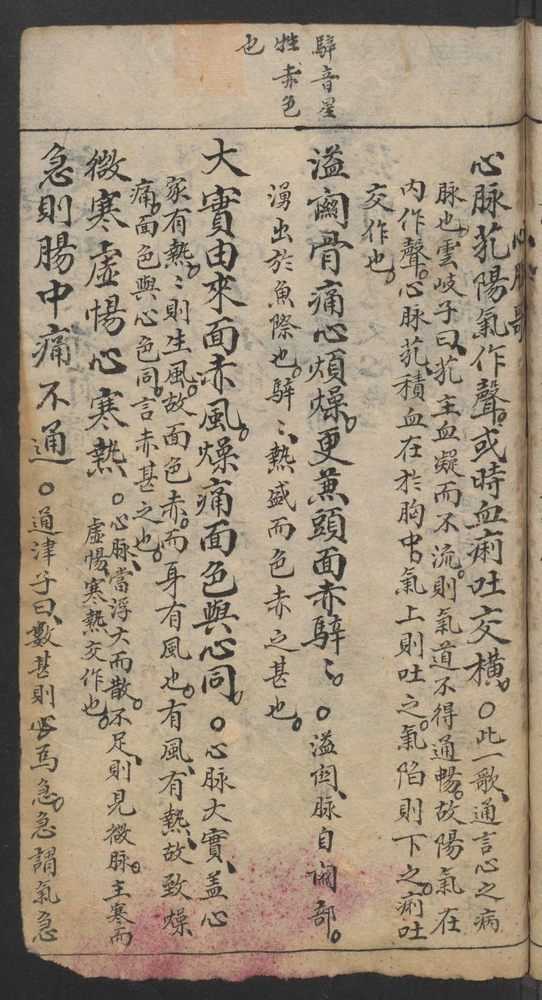 騂音星
牲赤色
也
心脉芤陽氣作聲或時血痢吐交横○此一歌通言心之病
脉也雲岐子曰芤主血凝而不流則氣道不得通暢故陽氣在
内作聲心脉芤積血在於胸中氣上則吐之氣陷則下之痢吐
交作也
溢關骨痛心煩燥更蒹頭面赤騂〻○溢関脉自関部
湧出於魚際也騂〻熱盛而色赤之甚也
大實由來面赤風燥痛面色與心同○心脉大實盖心
家有熱〻則生風故面色赤而身有風也有風有熱故致燥
痛面色與心色同言赤甚之也
微寒虚惕心寒熱○心脉當浮大而散不足則見微脉主寒而
虚惕寒熱交作也
急則腸中痛不通○通津子曰數甚則必為急急謂氣急